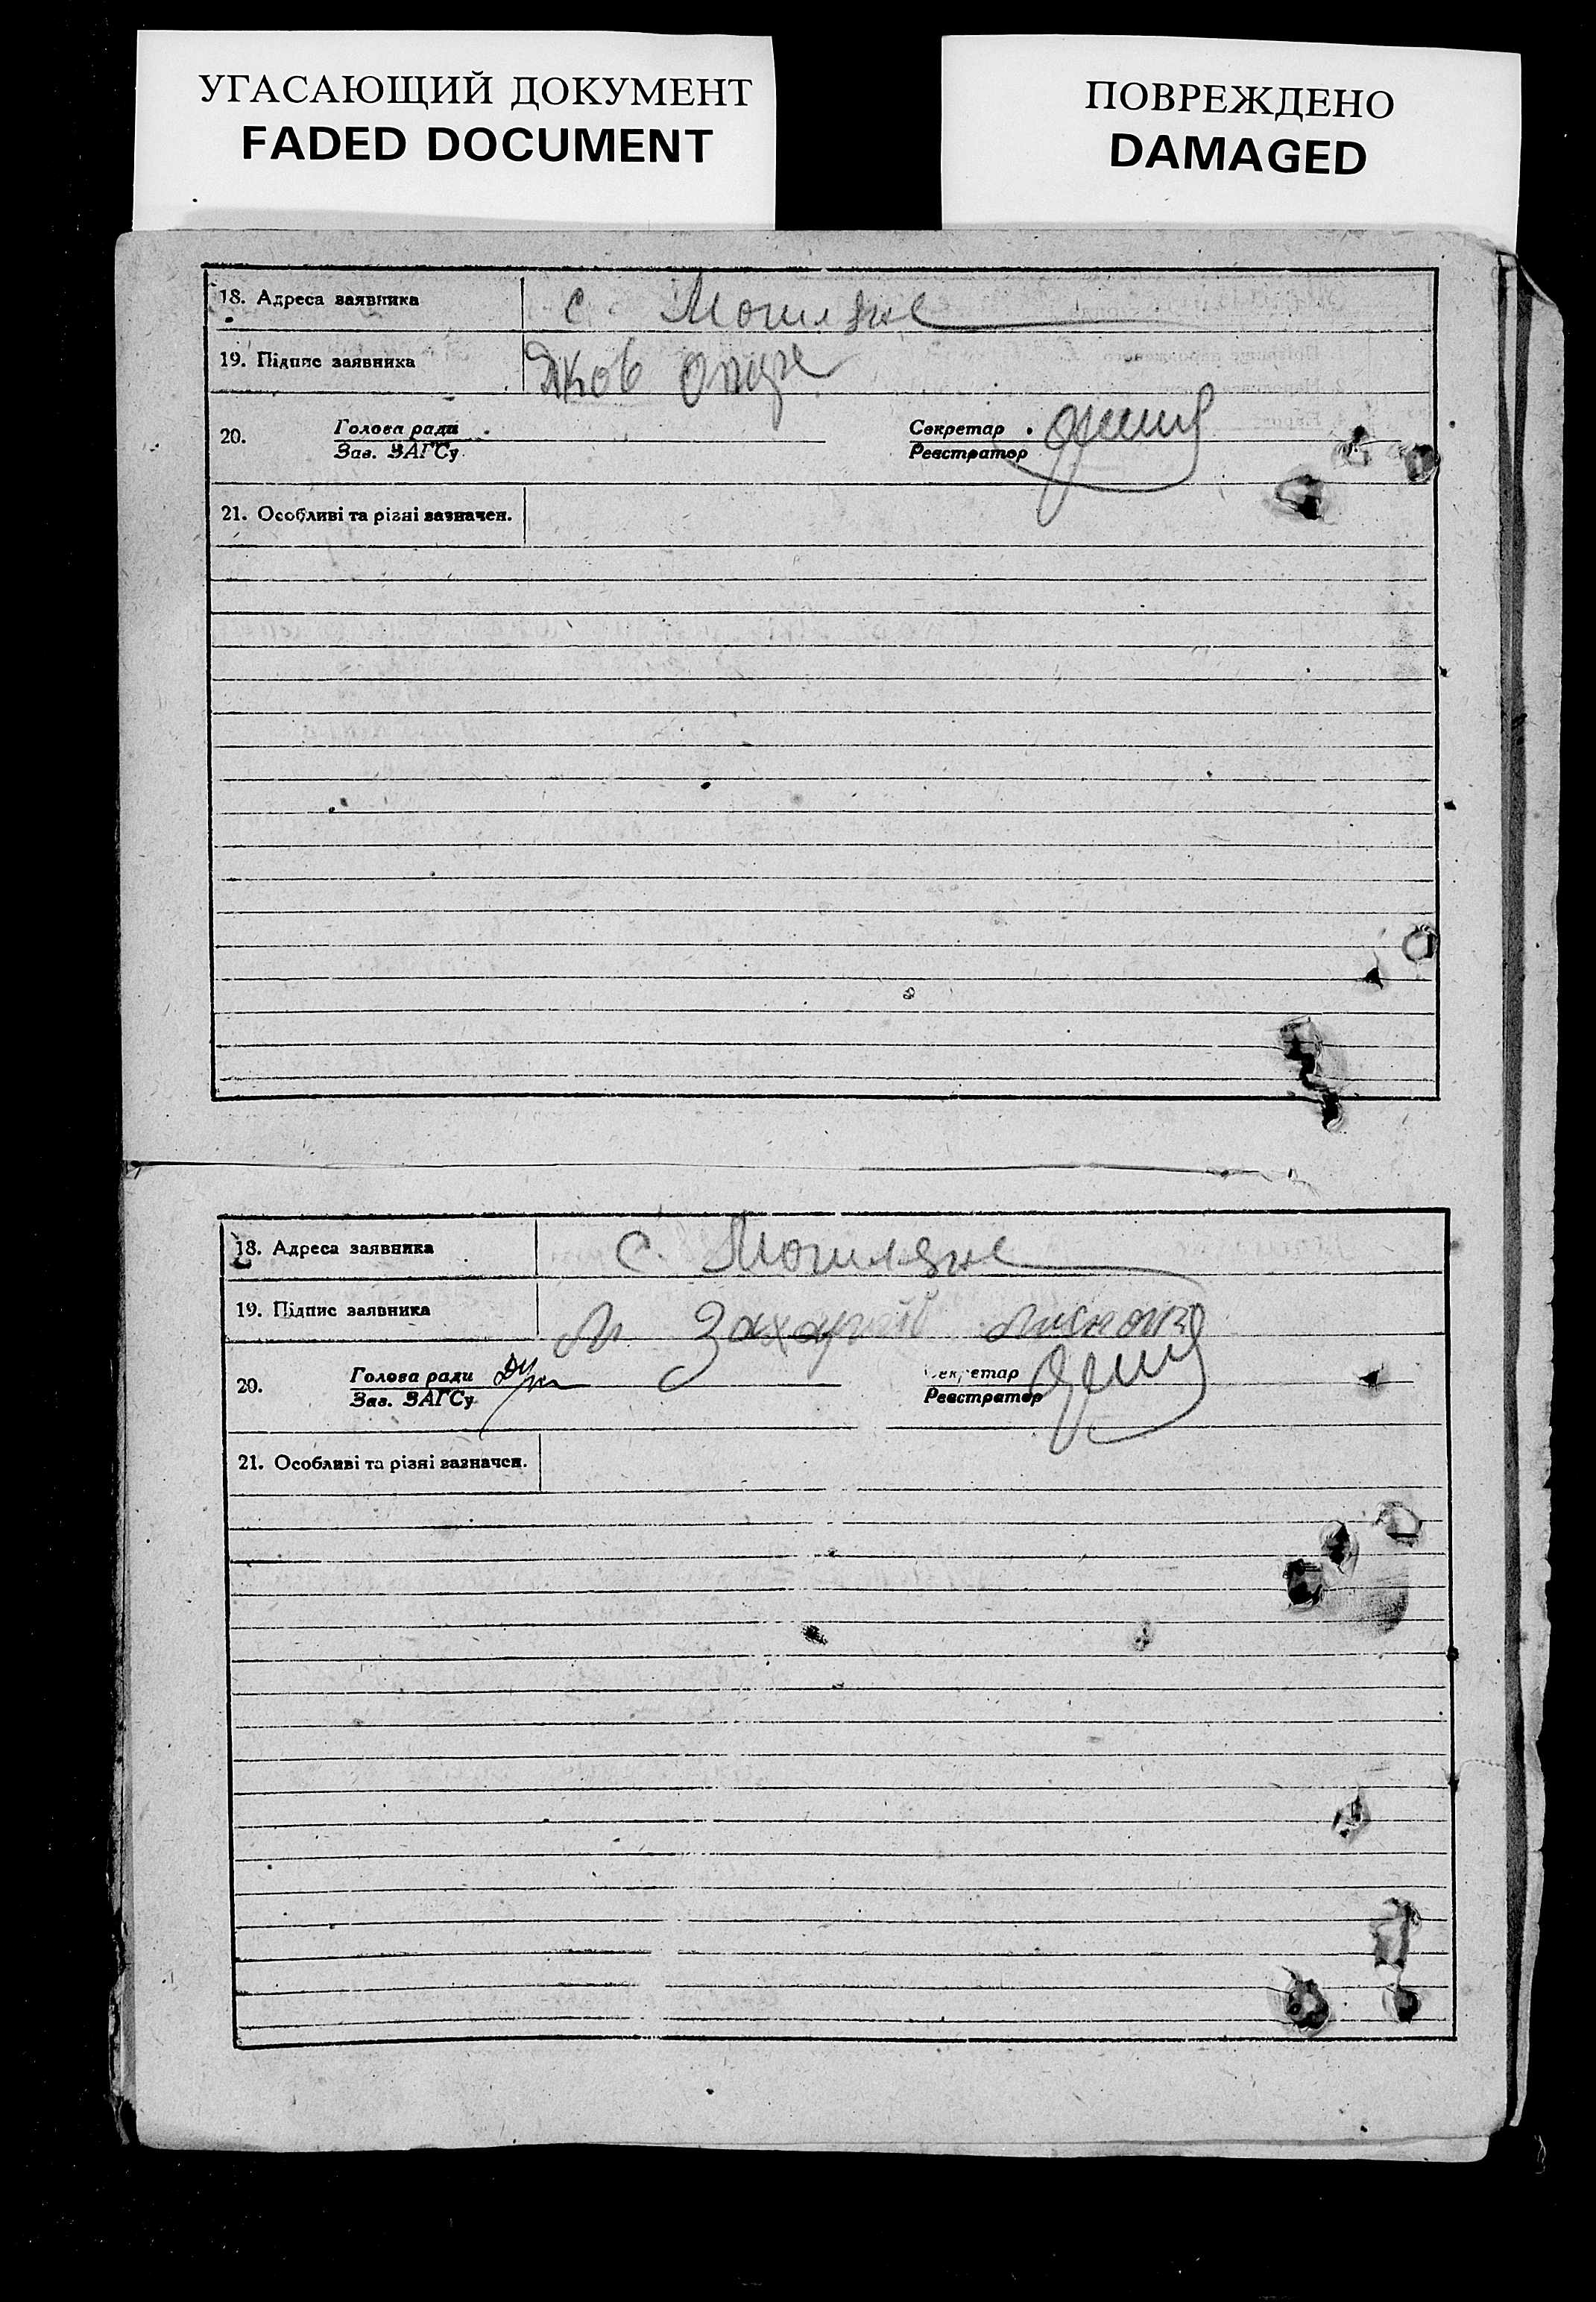 УГАСАЮЩИЙ ДОКУМЕНТ
FADED DOCUMENT
ПОВРЕЖДЕНО
DAMAGED
18. Адреса заявника с. Могиляне
19. Підпис заявника
20. Голова ради Секретар
Зав. ЗАГСу Реєстратор
21. Особливі та різні зазначен.
18. Адреса заявника с. Могиляне
19. Підпис заявника
20. Голова ради Секретар
Зав. ЗАГСу Реєстратор
21. Особливі та різні зазначен.